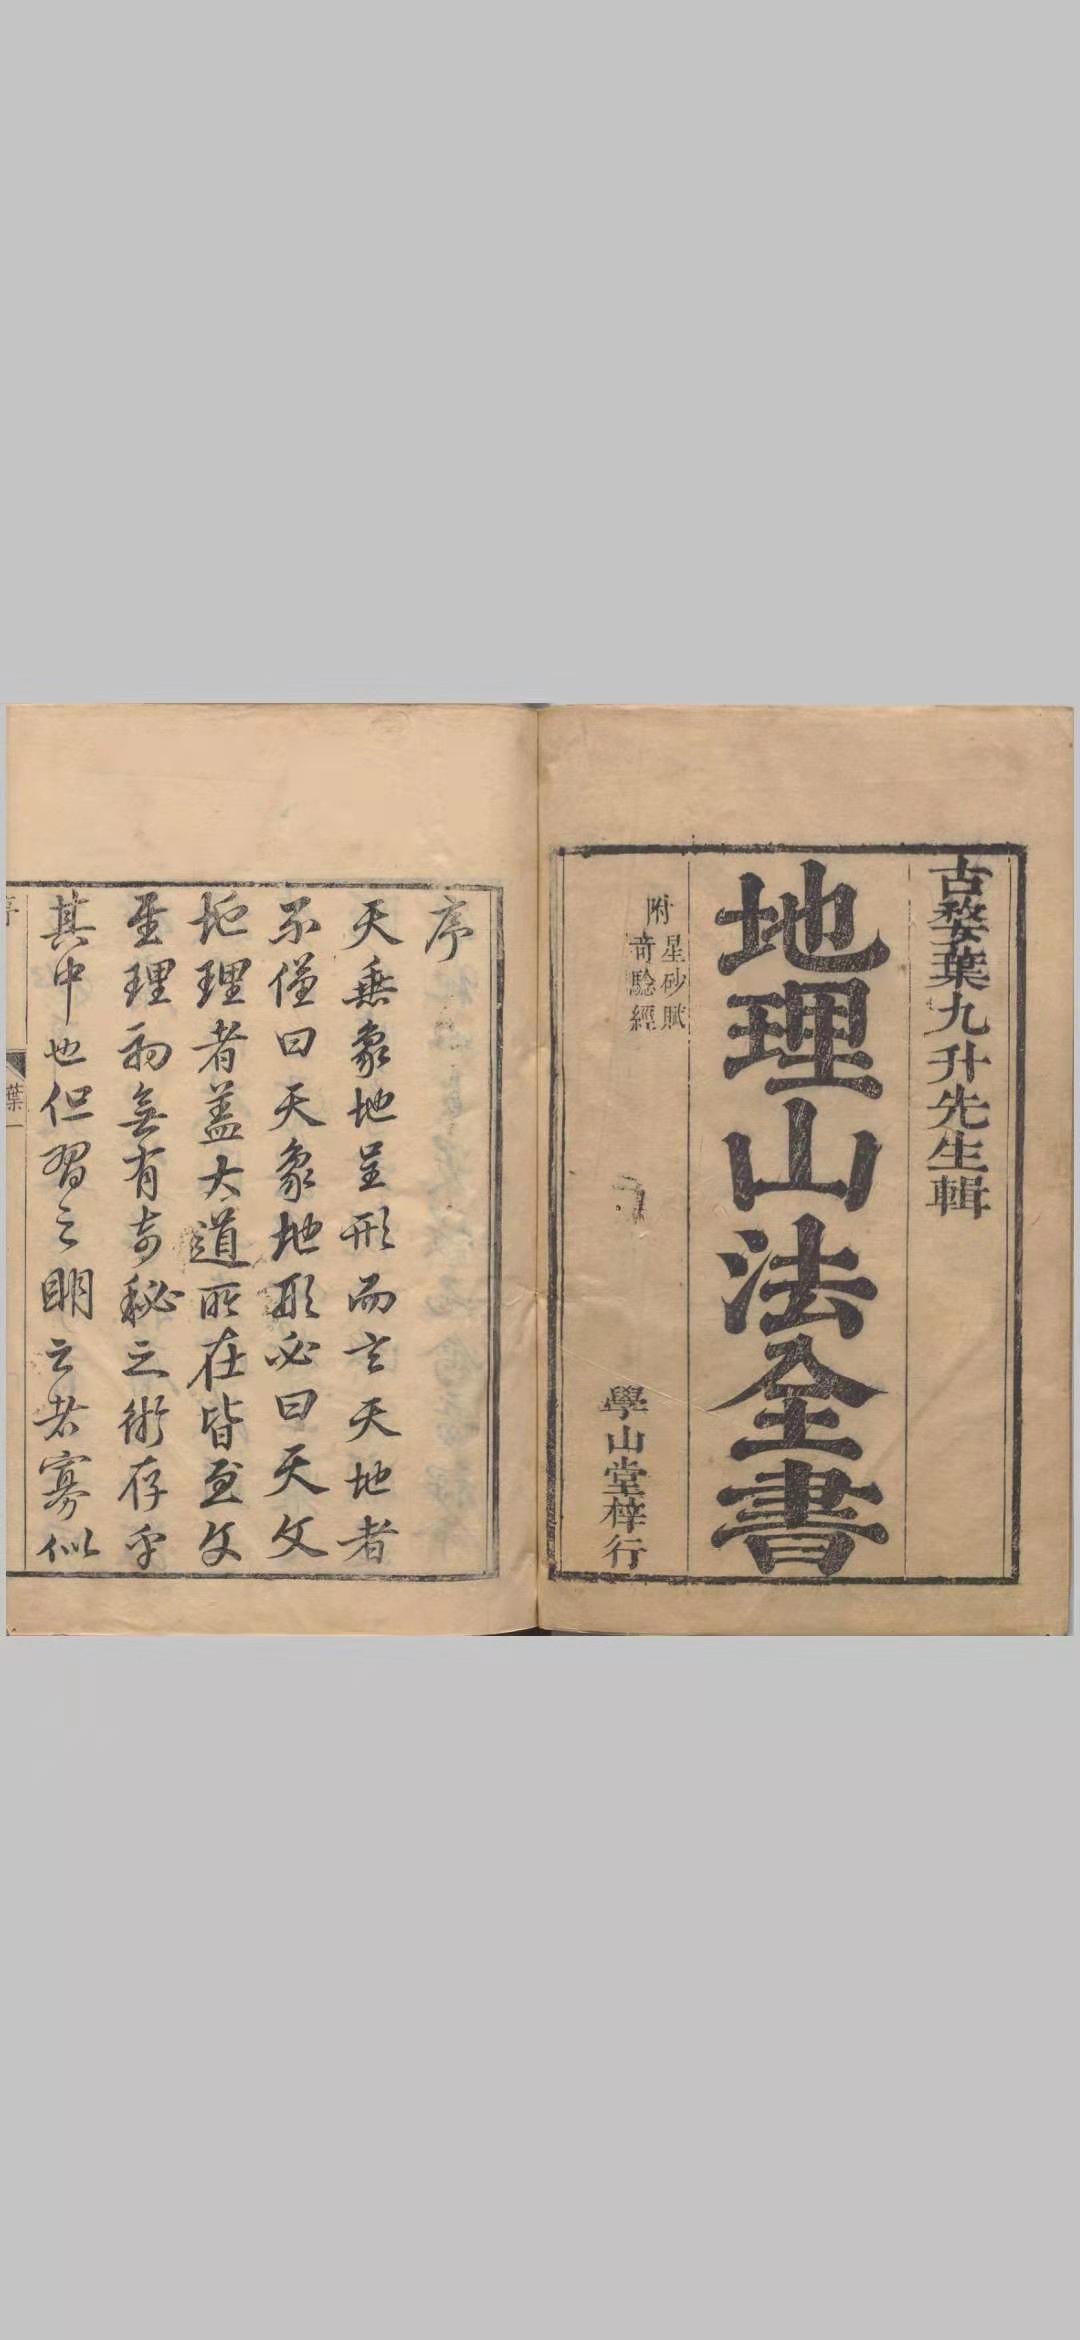 古婺葉九升先生輯
地理山法全書
附
星砂賦
奇驗經
學山堂梓行
序
天垂象地呈形而言天地者
不僅曰天象地形必曰天文
地理者蓋大道所在皆至文
至理初無有奇秘之術存乎
其中也但習之明之者寡似
序
葉一